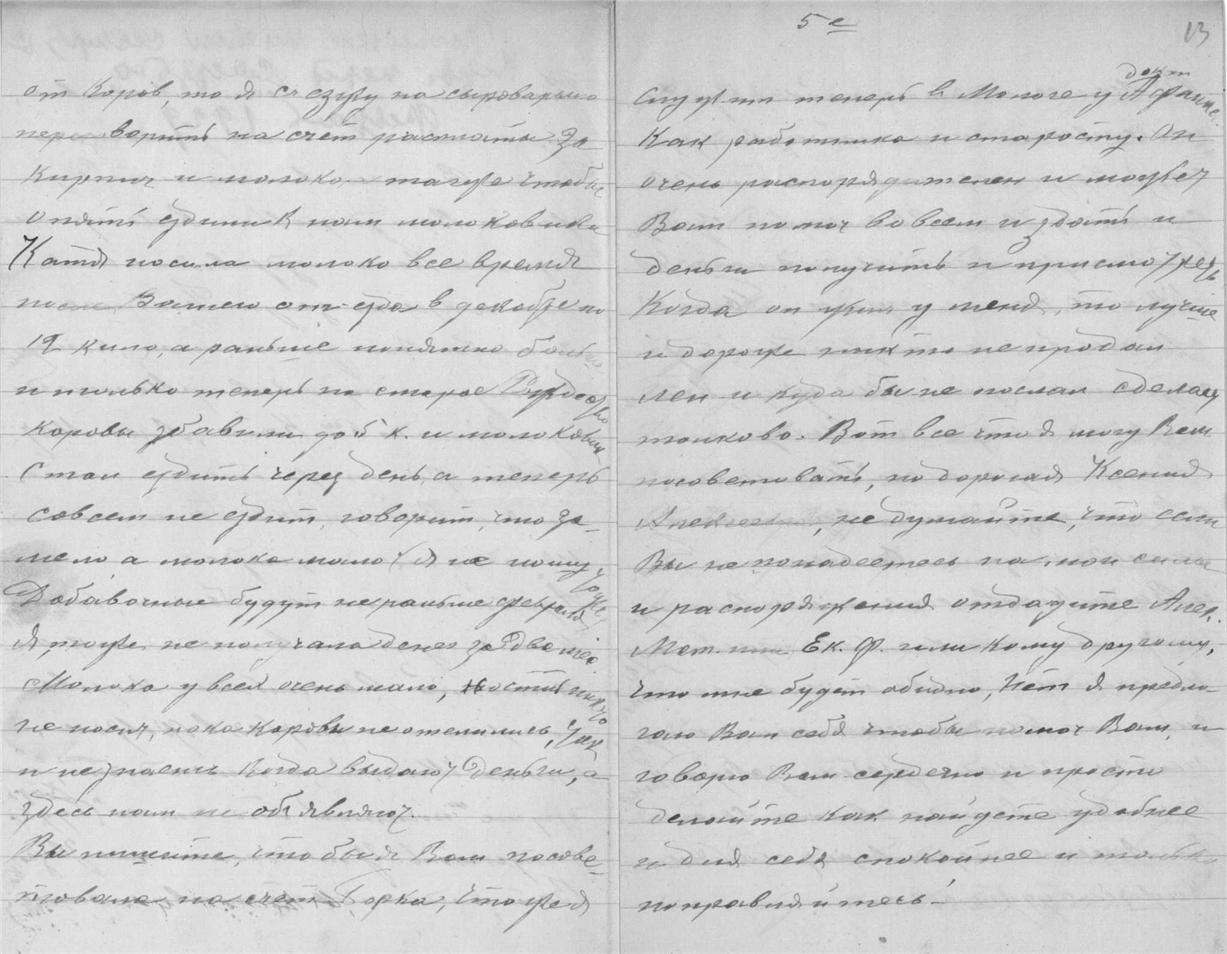 от коров, то я съезжу на сыроварню
переговорить на счет растраты за
кирпич и молоко, также чтобы
опять ездили к нам молоковики
Катя носила молоко все время
после Вашего отъезда в декабре по
12 кило, а раньше понятно больше
и только теперь на старое Рождество
коровы збавили до 5 к. и молоковик
стал ездить через день, а теперь
совсем не ездит, говорит, что за-
мело а молока мало (я не ношу тоже,
Добавочные будут не раньше февраля,
я тоже не получала денег за два м-ца
Молока у всех очень мало, почти никто
не носит, пока коровы не отелились, так
и не знаешь когда выдают деньги, а
здесь нам не объявляют.
Вы пишите, чтобы я Вам посове-
товала на счет Борка, что же я
5е
13
служит теперь в Мологе у докт
Как работника и старосту. Он
очень распорядителен и может
Вам помоч во всем и здать и
деньги получить и присмотреть
Когда он жил у меня, то лучше
и дороже никто не продал
лен и куда бы не послал сделает
толково. Вот все что я могу Вам
посоветовать, но дорогая Ксения
Алексеевна, не думайте, что если
Вы не понадеетесь на мои силы
и распоряжения отдадите Алек.
Мат. или Ек. Ф. или кому другому,
что мне будет обидно, Нет я предла-
гаю Вам себя чтобы помоч Вам, и
говорю Вам сердечно и просто
делайте как найдете удобнее
и для себя спокойнее и только
поправляйтесь!